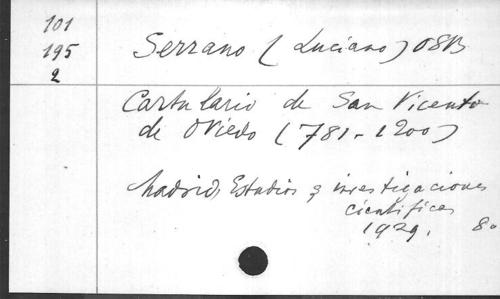 101
195
2
Serrano (Luciano) OSB
Cartulario de San Vicente
de Oviedo (781-1200)
Madrid, Estudios e investigaciones
cientifices
1929. 8º